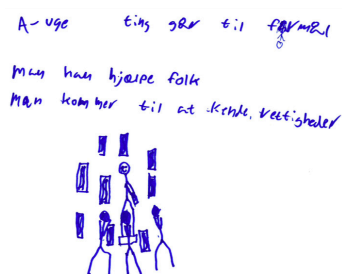 A-uge ting gør til formål
man kan hjælpe folk
Man kommer til at kende rettigheder